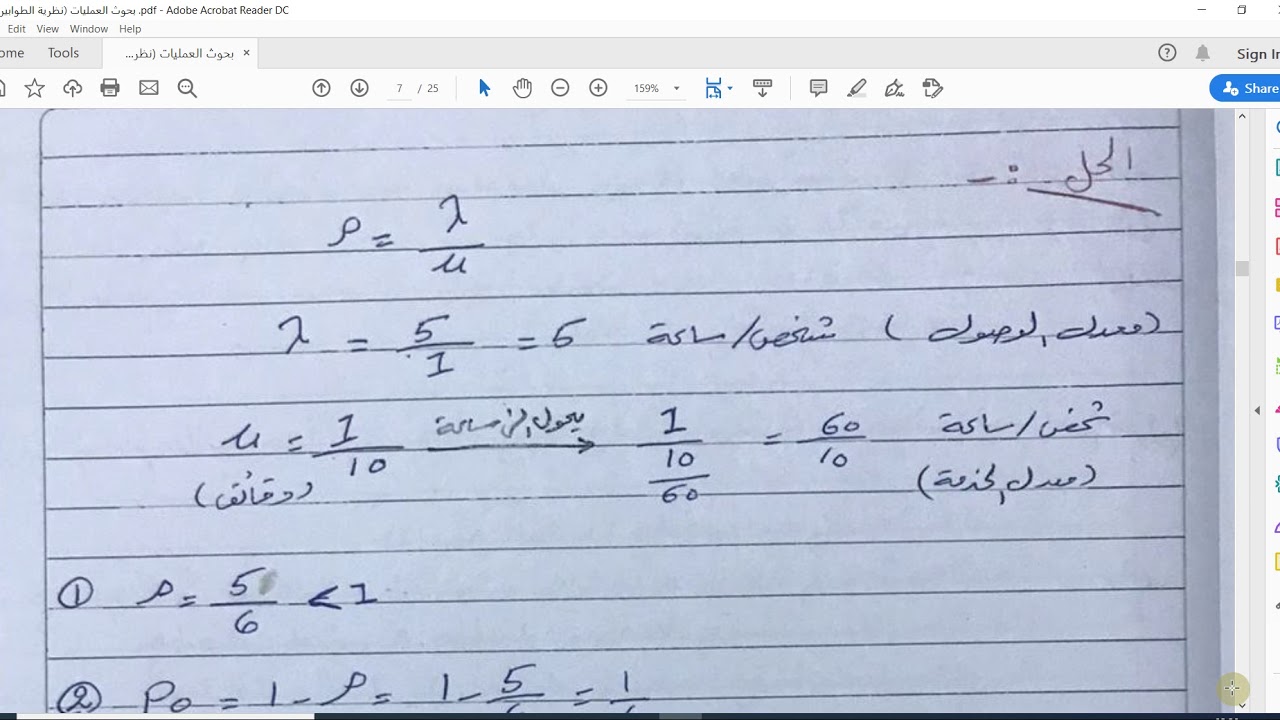 بحوث العمليات (نظرية الطوابير .pdf - Adobe Acrobat Reader DC
Edit View Window Help
ome Tools بحوث العمليات (نظر... × Sign In
7 / 25 159% Share
الحل :-
ρ = λ / μ
λ = 5/1 = 5 شخص/ساعة (معدل الوصول)
μ = 1/10 يحول إلى ساعة → 1/(10/60) = 60/10 شخص/ساعة
(دقائق) (معدل الخدمة)
① ρ = 5/6 < 1
② P0 = 1 - ρ = 1 - 5/6 = 1/6